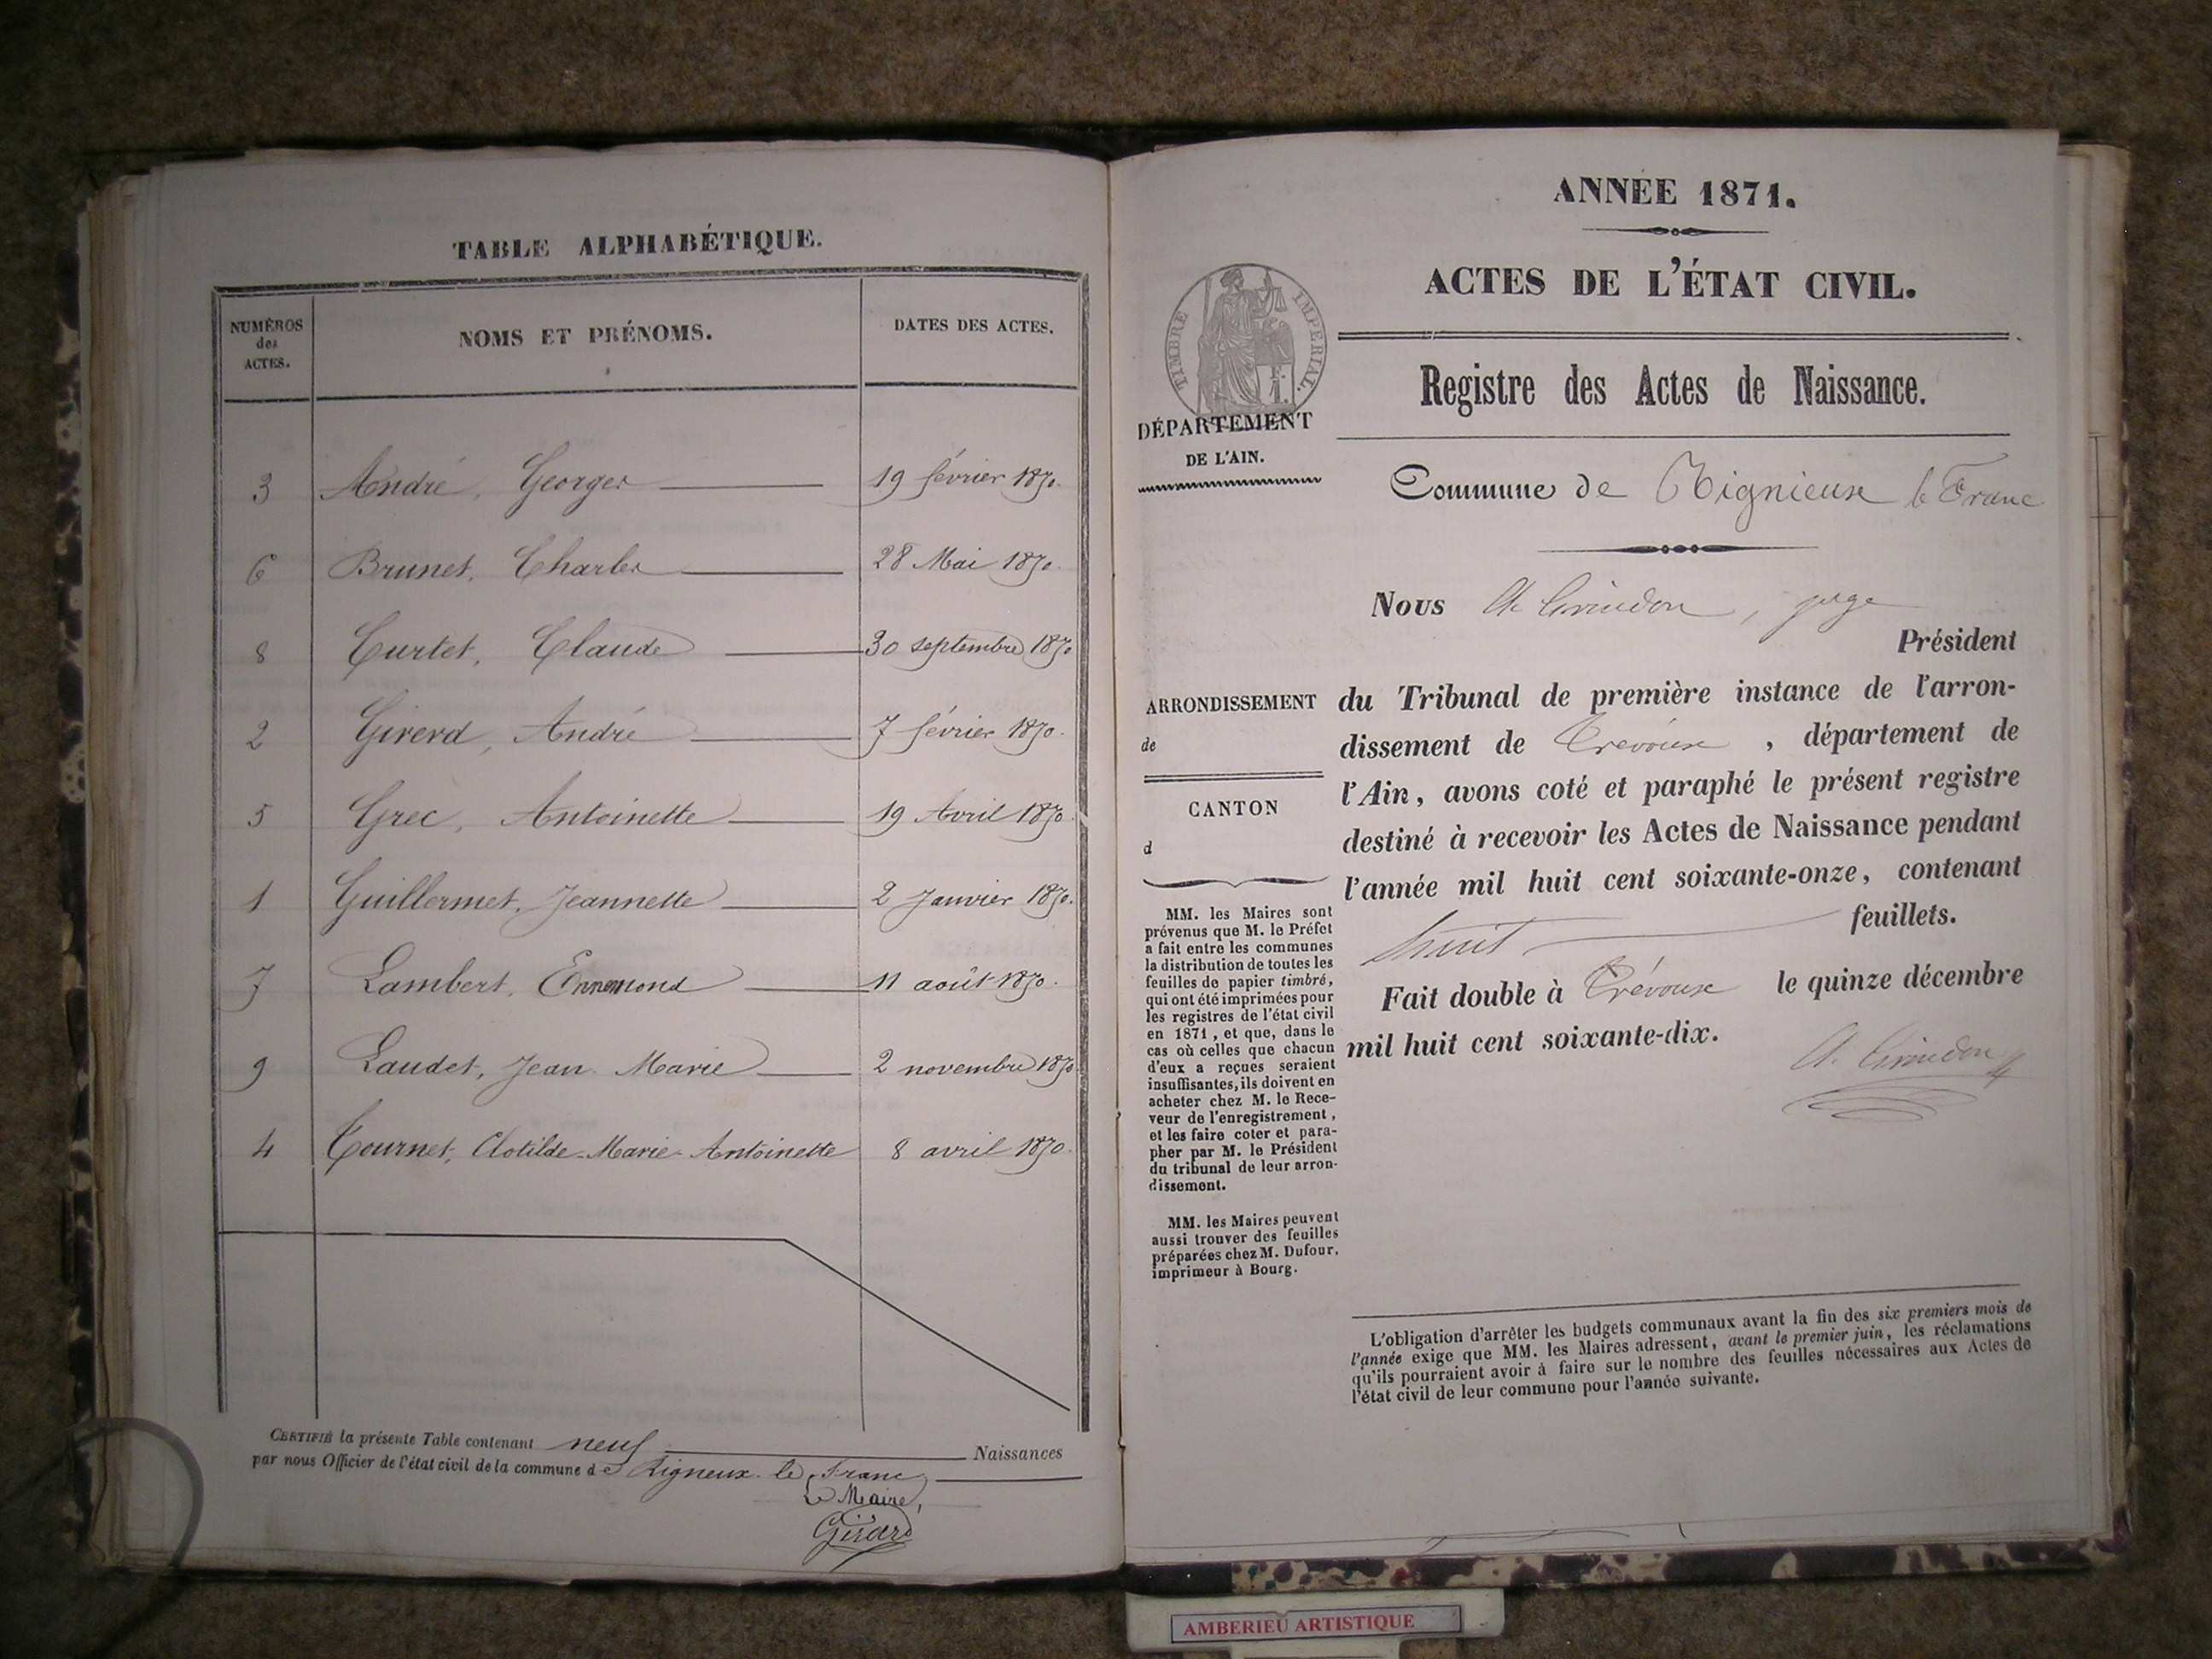 TABLE ALPHABÉTIQUE.
NUMÉROS des ACTES.
NOMS ET PRÉNOMS.
DATES DES ACTES.
3 André, Georges 19 février 1870.
6 Brunet, Charles 28 Mai 1870.
8 Curtet, Claude 30 septembre 1870
2 Girerd, André 7 février 1870.
5 Grec, Antoinette 19 Avril 1870.
1 Guillermet, Jeannette 2 Janvier 1870.
7 Lambert, Ennemond 11 août 1870.
9 Laudet, Jean Marie 2 novembre 1870
4 Tournet, Clotilde-Marie-Antoinette 8 avril 1870.
CERTIFIÉ la présente Table contenant neuf Naissances
par nous Officier de l'état civil de la commune de Rigneux-le-Franc
Le Maire,
Girard
ANNÉE 1871.
ACTES DE L'ÉTAT CIVIL.
TIMBRE IMPÉRIAL.
Registre des Actes de Naissance.
DÉPARTEMENT
DE L'AIN.
Commune de Rignieux le Franc
Nous juge
Président
ARRONDISSEMENT
de
CANTON
d
du Tribunal de première instance de l'arron-
dissement de Trévoux, département de
l'Ain, avons coté et paraphé le présent registre
destiné à recevoir les Actes de Naissance pendant
l'année mil huit cent soixante-onze, contenant
huit feuillets.
Fait double à Trévoux le quinze décembre
mil huit cent soixante-dix.
MM. les Maires sont
prévenus que M. le Préfet
a fait entre les communes
la distribution de toutes les
feuilles de papier timbré,
qui ont été imprimées pour
les registres de l'état civil
en 1871, et que, dans le
cas où celles que chacun
d'eux a reçues seraient
insuffisantes, ils doivent en
acheter chez M. le Rece-
veur de l'enregistrement,
et les faire coter et para-
pher par M. le Président
du tribunal de leur arron-
dissement.
MM. les Maires peuvent
aussi trouver des feuilles
préparées chez M. Dufour,
imprimeur à Bourg.
L'obligation d'arrêter les budgets communaux avant la fin des six premiers mois de
l'année exige que MM. les Maires adressent, avant le premier juin, les réclamations
qu'ils pourraient avoir à faire sur le nombre des feuilles nécessaires aux Actes de
l'état civil de leur commune pour l'année suivante.
AMBERIEU ARTISTIQUE